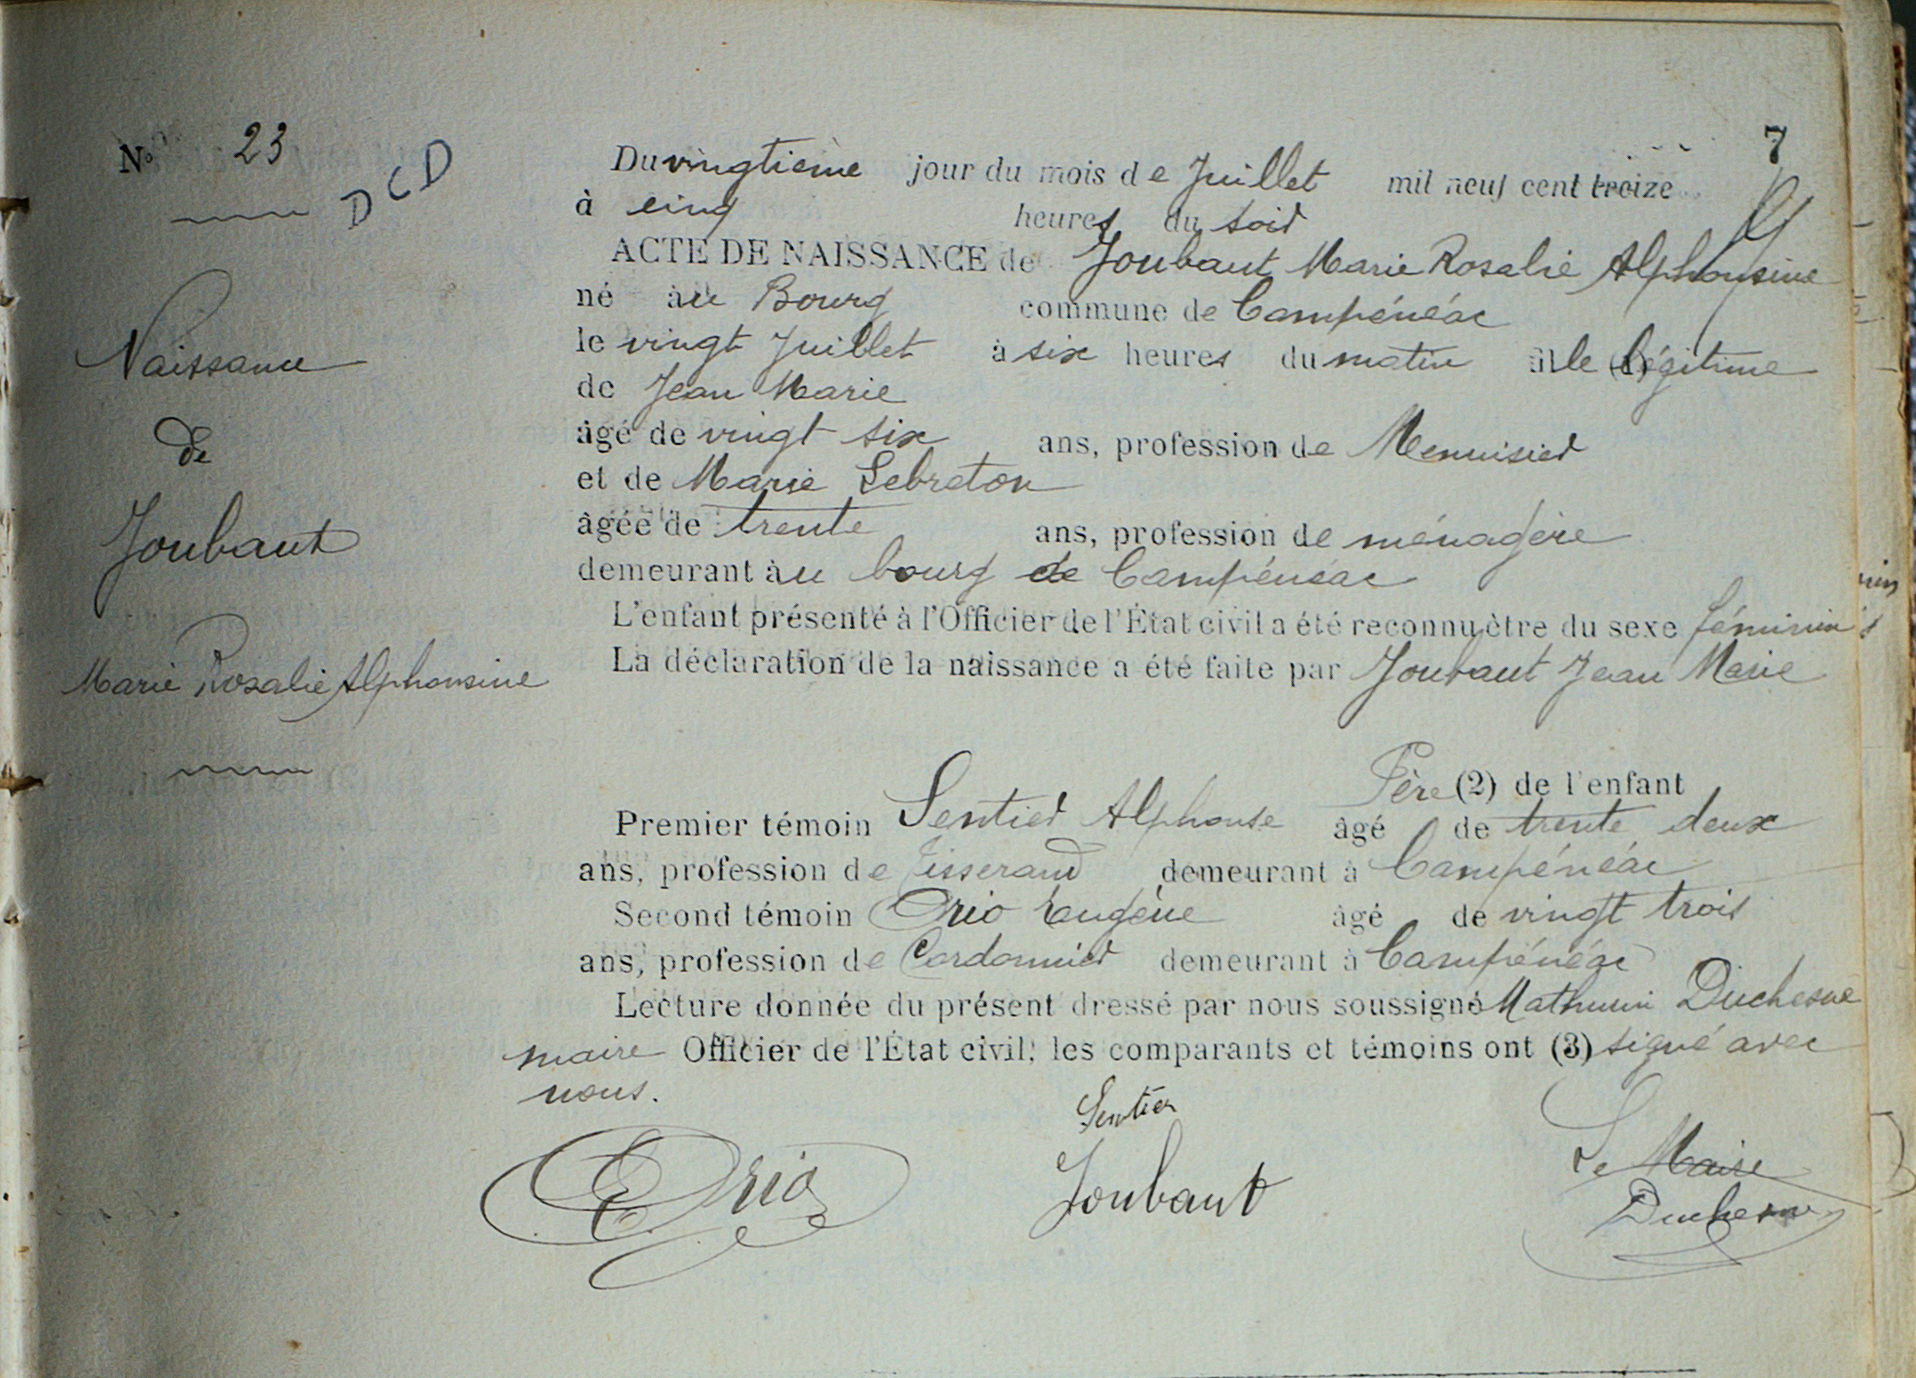 7
N° 23
DCD
Naissance
de
Joubaut
Marie Rosalie Alphonsine
Du vingtième jour du mois de Juillet mil neuf cent treize
à cinq heures du soir
ACTE DE NAISSANCE de Joubaut Marie Rosalie Alphonsine
né au Bourg commune de Campénéac
le vingt Juillet à six heures du matin fille (1) légitime
de Jean Marie
âgé de vingt six ans, profession de Menuisier
et de Marie Lebreton
âgée de trente ans, profession de ménagère
demeurant au bourg de Campénéac
L'enfant présenté à l'Officier de l'État civil a été reconnu être du sexe féminin
La déclaration de la naissance a été faite par Joubaut Jean Marie
Père (2) de l'enfant
Premier témoin Sentier Alphonse âgé de trente deux
ans, profession de Tisserand demeurant à Campénéac
Second témoin Orio Eugène âgé de vingt trois
ans, profession de Cordonnier demeurant à Campénéac
Lecture donnée du présent dressé par nous soussigné Mathurin Duchesne
maire Officier de l'État civil; les comparants et témoins ont (3) signé avec
nous.
Sentier
E Orio Joubaut Le Maire
Duchesne